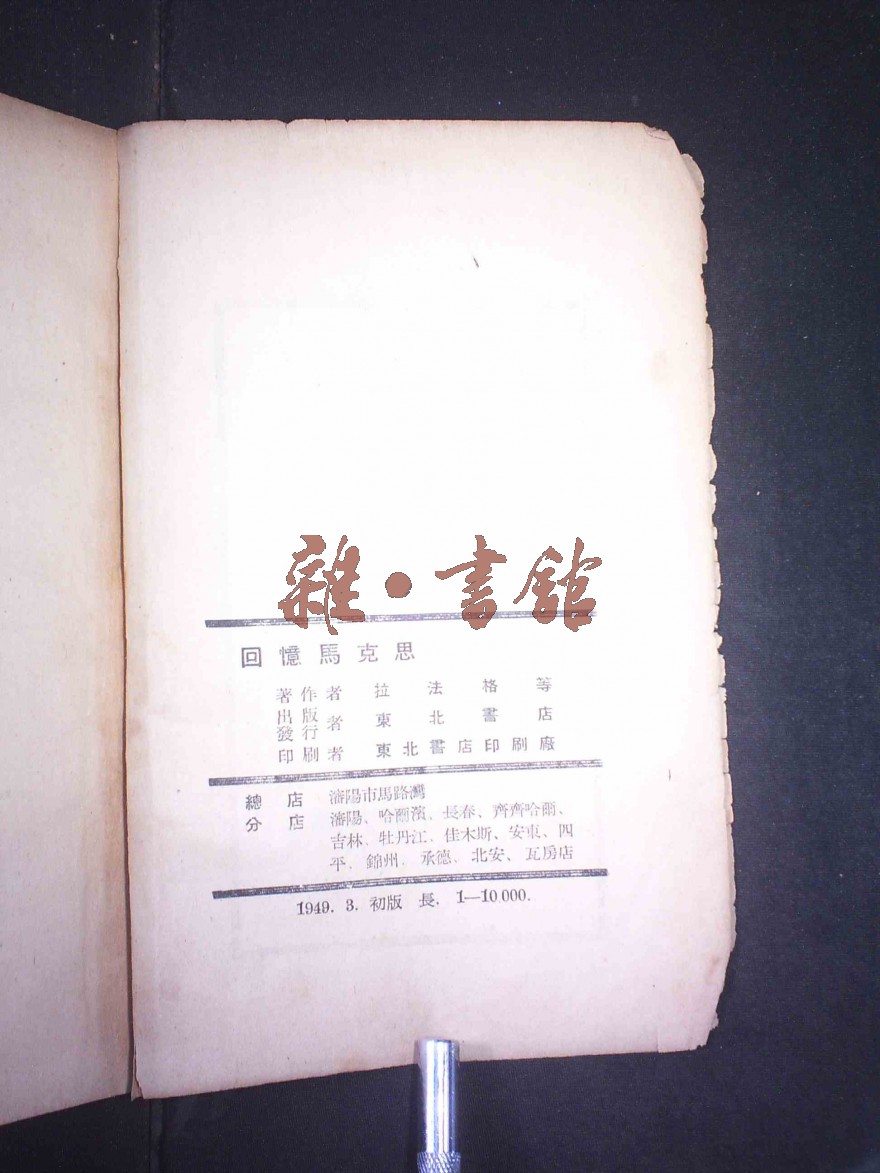 雜·書館
回憶馬克思
著作者 拉法格等
出版
發行者 東北書店
印刷者 東北書店印刷廠
總店 瀋陽市馬路灣
分店 瀋陽、哈爾濱、長春、齊齊哈爾、
吉林、牡丹江、佳木斯、安東、四
平、錦州、承德、北安、瓦房店
1949. 3. 初版 長. 1—10 000.